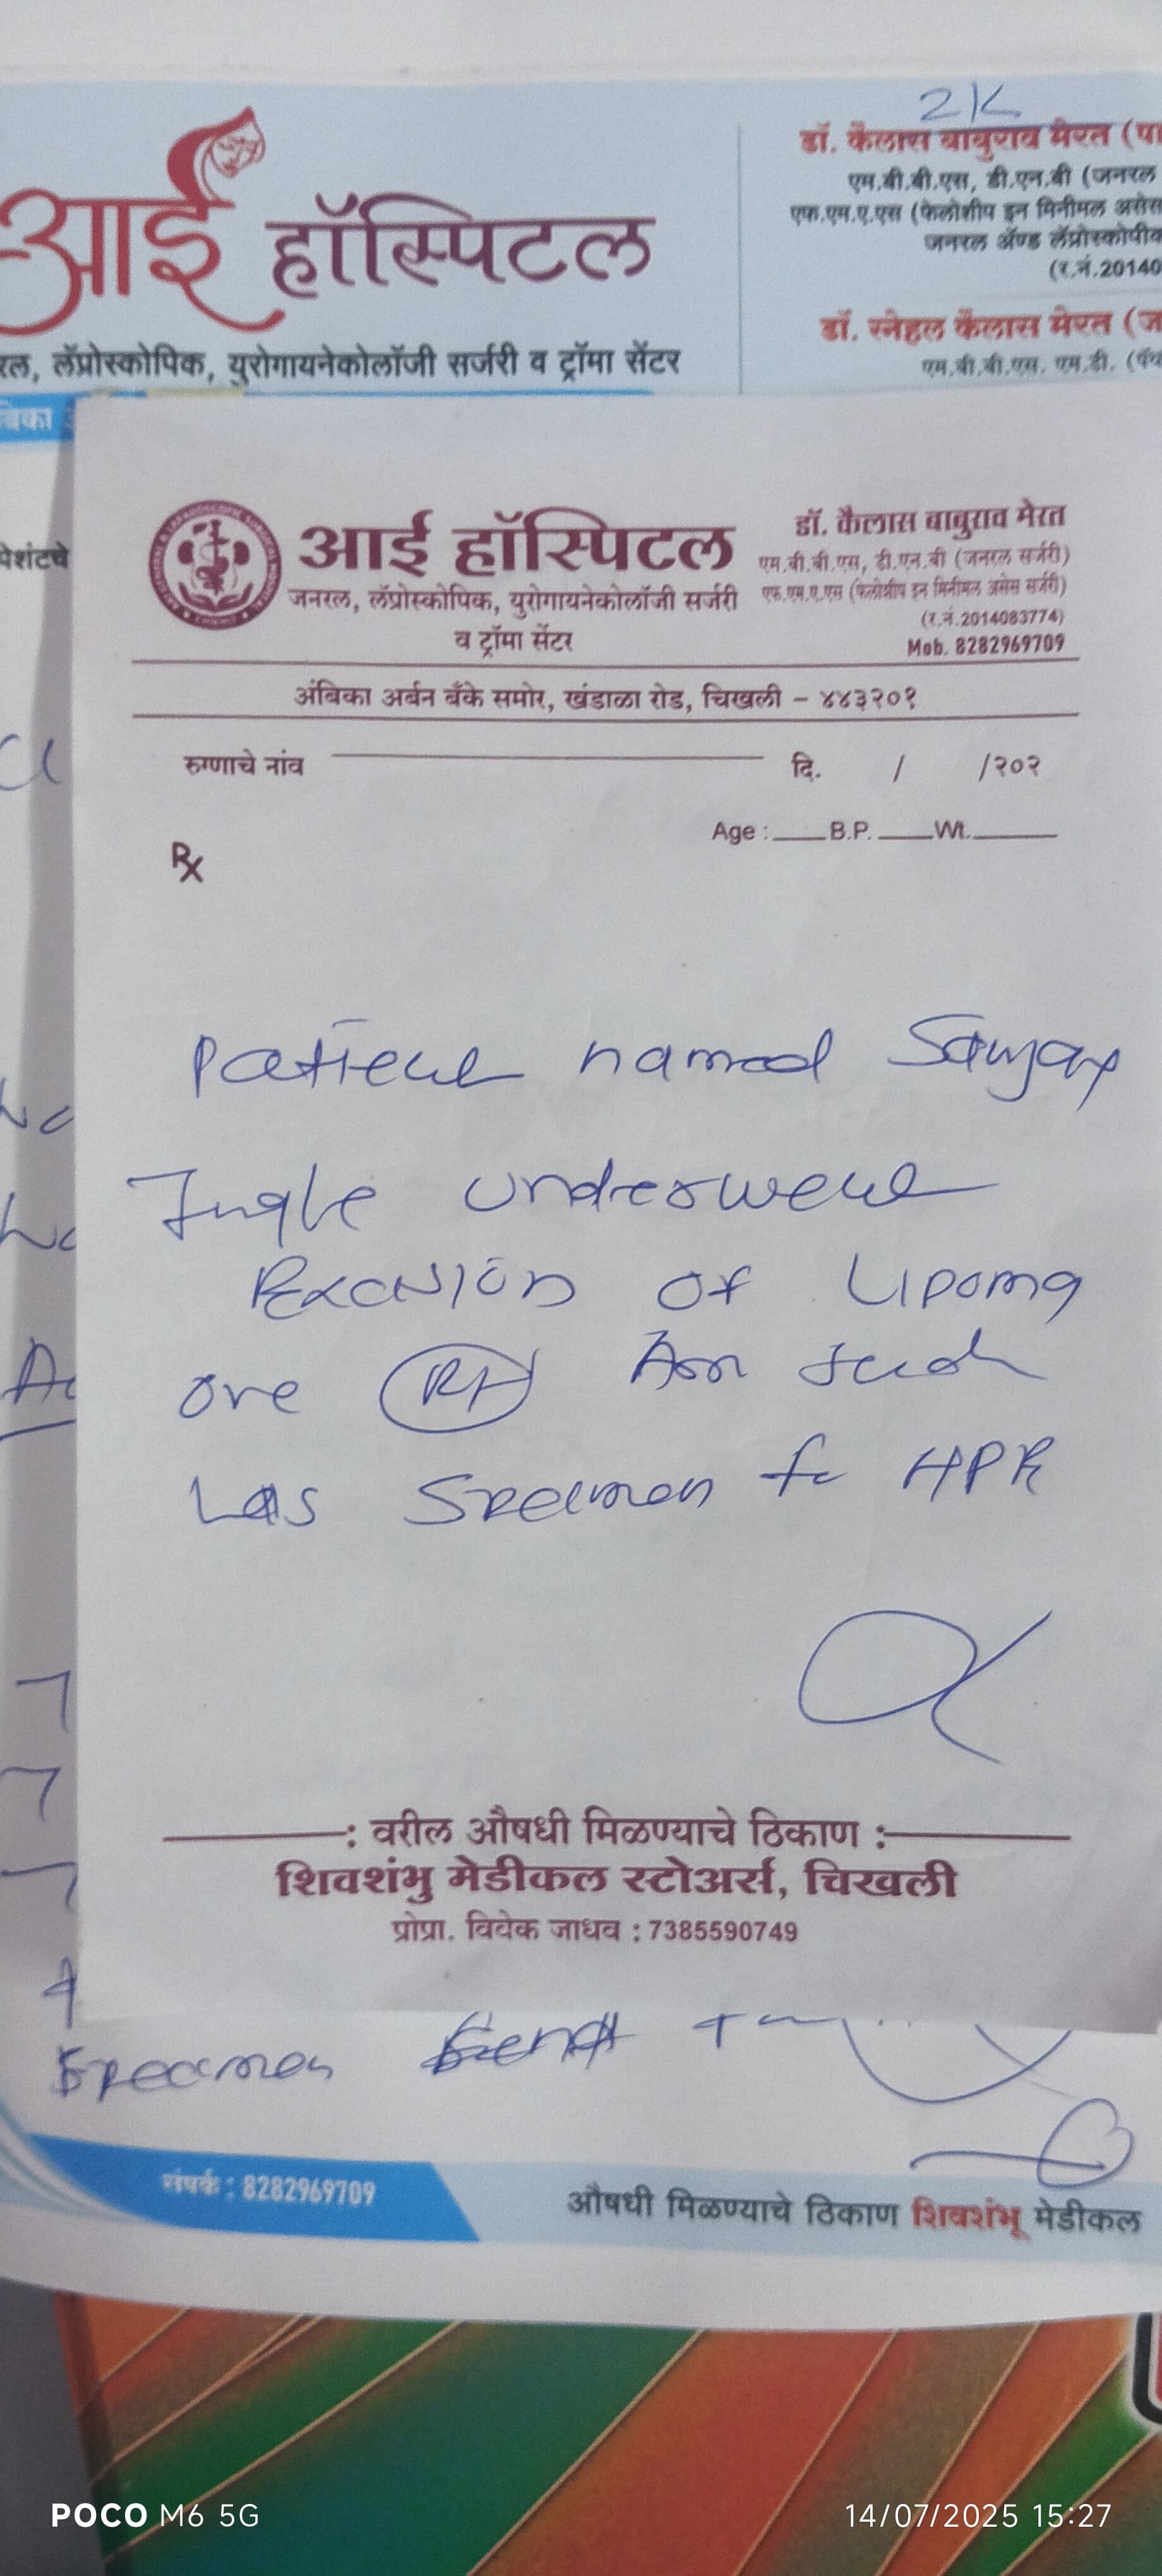 2K
आई हॉस्पिटल
डॉ. कैलास बाबुराव मेरत
एम.बी.बी.एस, डी.एन.बी (जनरल
एफ.एम.ए.एस (फेलोशीप इन मिनीमल असेस
जनरल अ‍ॅण्ड लॅप्रोस्कोपीक
(र.नं.20140
डॉ. स्नेहल कैलास मेरत
एम.बी.बी.एस. एम.डी.
लॅप्रोस्कोपिक, युरोगायनेकोलॉजी सर्जरी व ट्रॉमा सेंटर
पेशंटचे
आई हॉस्पिटल
जनरल, लॅप्रोस्कोपिक, युरोगायनेकोलॉजी सर्जरी
व ट्रॉमा सेंटर
डॉ. कैलास बाबुराव मेरत
एम.बी.बी.एस, डी.एन.बी (जनरल सर्जरी)
एफ.एम.ए.एस (फेलोशीप इन मिनिमल असेस सर्जरी)
(र.नं.2014083774)
Mob. 8282969709
अंबिका अर्बन बँके समोर, खंडाळा रोड, चिखली - ४४३२०१
रुग्णाचे नांव दि. / /२०२
Age : B.P. Wt.
Rx
Patient named Sanjay
Ingle underwent
Excision of Lipoma
over Rt Arm
specimen for HPR
: वरील औषधी मिळण्याचे ठिकाण :
शिवशंभु मेडीकल स्टोअर्स, चिखली
प्रोप्रा. विवेक जाधव : 7385590749
Specimen
संपर्क : 8282969709
औषधी मिळण्याचे ठिकाण शिवशंभू मेडीकल
POCO M6 5G
14/07/2025 15:27